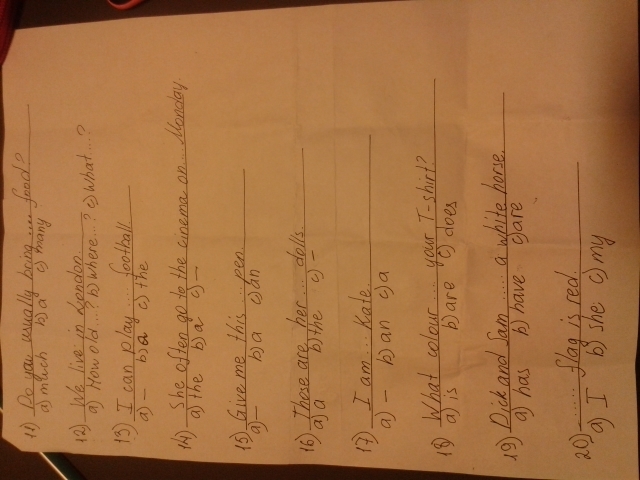 11) Do you usually bring ..... food?
a) much b) a c) many
12) We live in London.
a) How old...? b) where...? c) what....?
13) I can play .... football
a) – b) a c) the
14) She often go to the cinema on ... Monday.
a) the b) a c) –
15) Give me this ... pen.
a) – b) a c) an
16) These are her ... dolls.
a) a b) the c) –
17) I am ... Kate.
a) – b) an c) a
18) What colour .... your T-shirt?
a) is b) are c) does
19) Dick and Sam ..... a white horse.
a) has b) have c) are
20) ...... flag is red.
a) I b) she c) my